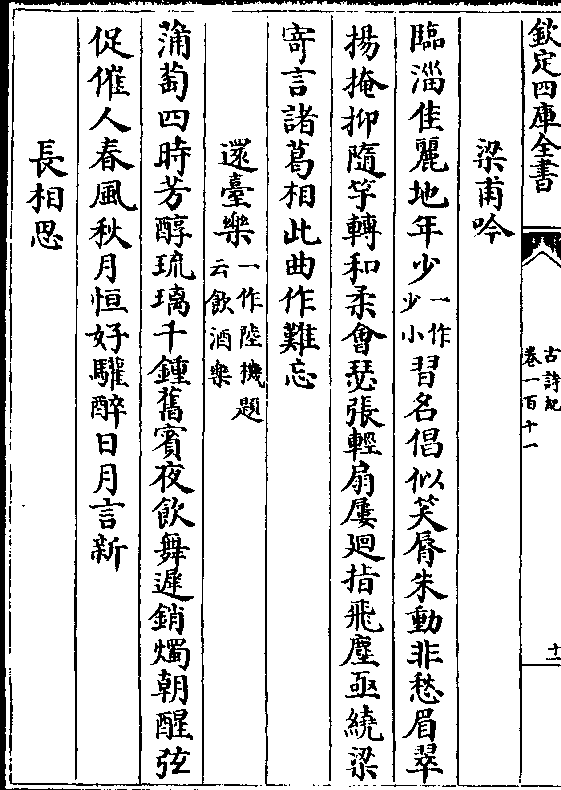 欽定四庫全書
古詩紀
卷一百十一
十一
梁甫吟
臨淄佳麗地年少一作少小習名倡似笑脣朱動非愁眉翠
揚掩抑隨竽轉和柔會瑟張輕扇屢迴指飛塵亟繞梁
寄言諸葛相此曲作難忘
還臺樂一作陸機題云飲酒樂
蒲萄四時芳醇琉璃千鍾舊賓夜飲舞遲銷燭朝醒弦
促催人春風秋月恒好驩醉日月言新
長相思